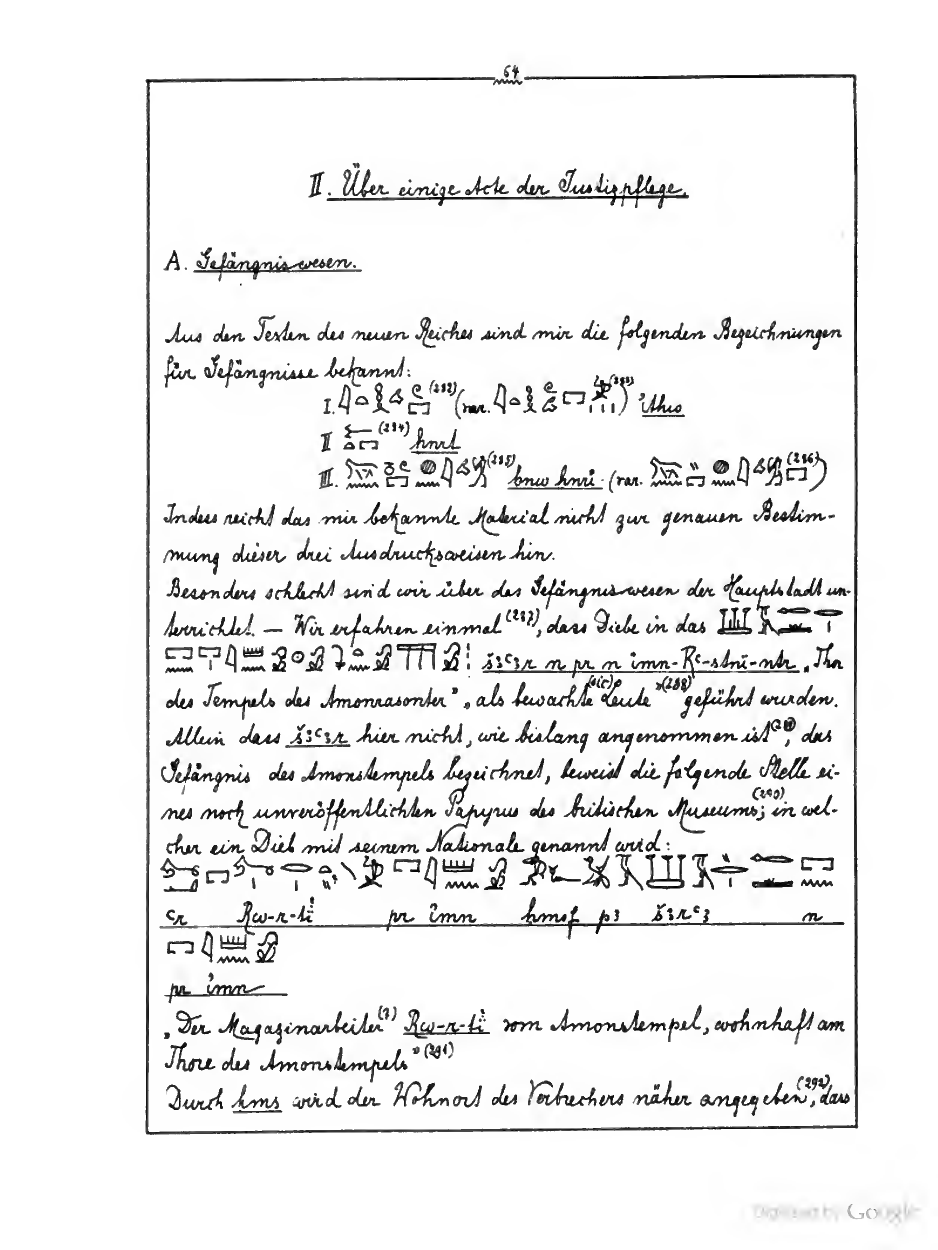 64
II. Über einige Acte der Justizpflege.
A. Gefängniswesen.
Aus den Texten des neuen Reiches sind mir die folgenden Bezeichnungen
für Gefängnisse bekannt:
I. (282) (var. (283))
II (284) ḫnrt
III. (285) (var. (286))
Indess reicht das mir bekannte Material nicht zur genauen Bestim-
mung dieser drei Ausdrucksweisen hin.
Besonders schlecht sind wir über das Gefängniswesen der Hauptstadt un-
terrichtet. — Wir erfahren einmal (287), dass Diebe in das
n pr n imn-Rꜥ-stni-ntr „Thor
des Tempels des Amonrasonter", „als bewachte (sic) Leute" (288) geführt wurden.
Allein dass hier nicht, wie bislang angenommen ist, das
Gefängnis des Amonstempels bezeichnet, beweist die folgende Stelle ei-
nes noch unveröffentlichten Papyrus des britischen Museums (290), in wel-
cher ein Dieb mit seinem Nationale genannt wird:
Rw-r-ti pr imn ḥmsf p3 n
pr imn
„Der Magazinarbeiter (?) Rw-r-ti vom Amonstempel, wohnhaft am
Thore des Amonstempels" (291)
Durch ḥms wird der Wohnort des Verbrechers näher angegeben (292), dass
Digitized by Google